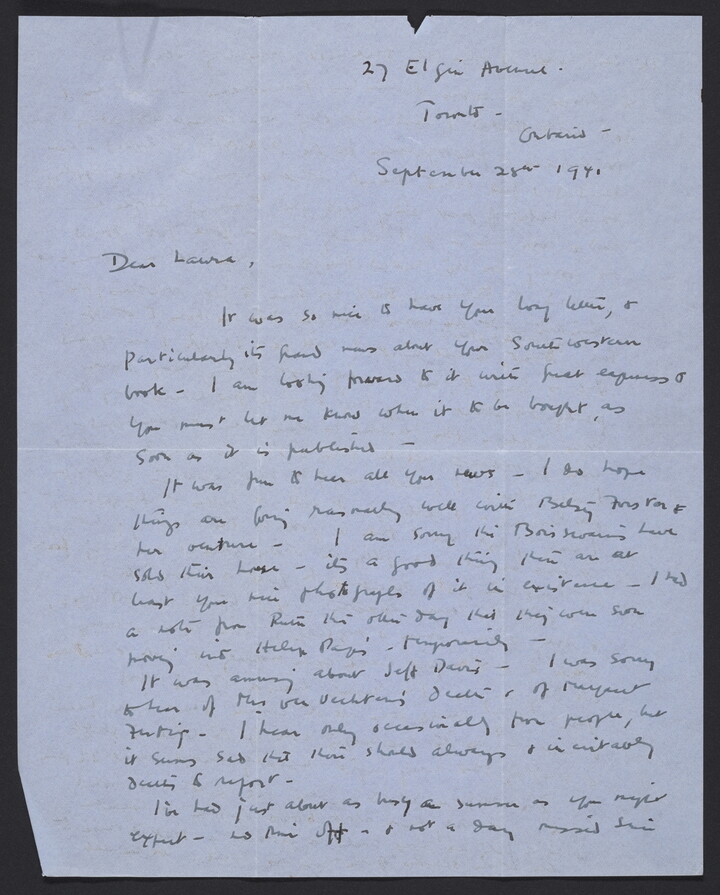 27 Elgin Avenue.
Toronto -
Ontario -
September 28th 1941
Dear Laura,
It was so nice to have your long letter, &
particularly its grand news about your Southwestern
book - I am looking forward to it with great eagerness &
you must let me know when it is to be bought, as
soon as it is published -
It was fun to hear all your news - I do hope
things are going reasonably well with Betsy Forster &
her venture - I am sorry the Boissevains have
sold their house - its a good thing there are at
least your nice photographs of it in existence - I had
a note from Ruth the other day that they were soon
moving into Helen Page's - temporarily -
It was amusing about Jeff Davis - I was sorry
to hear of Mrs van Vechten's death & of Margaret
- I hear only occasionally from people, but
it seems sad that there should always & inevitably
deaths to report -
I've had just about as busy a summer as you might
expect - no time off - & not a day missed since